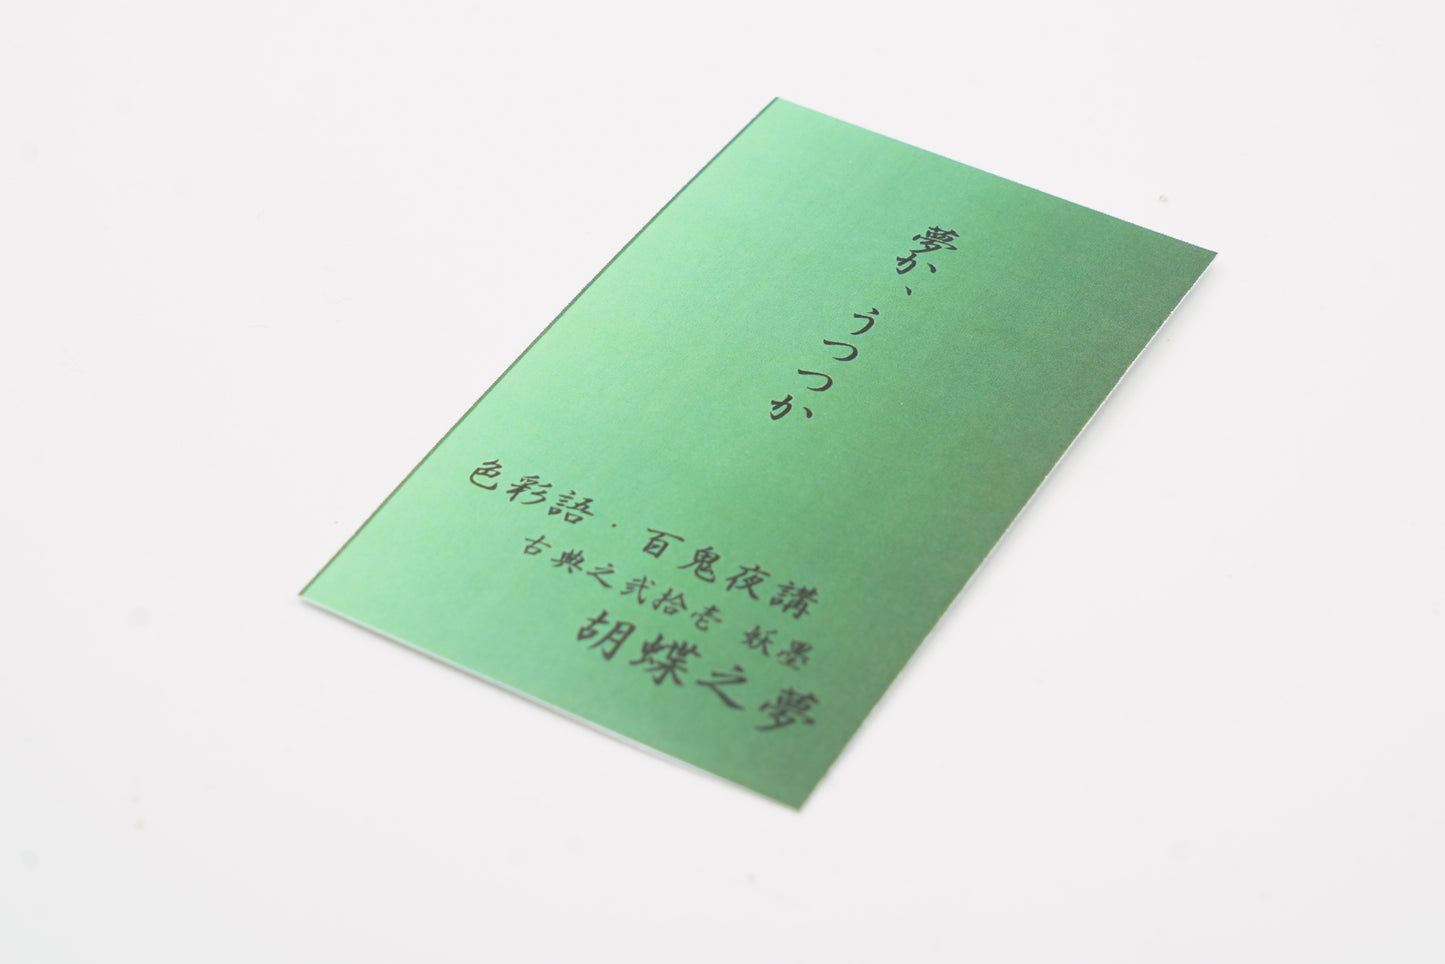 夢か、うつつか
色彩語・百鬼夜講
古典之弐拾壱 妖墨
胡蝶之夢